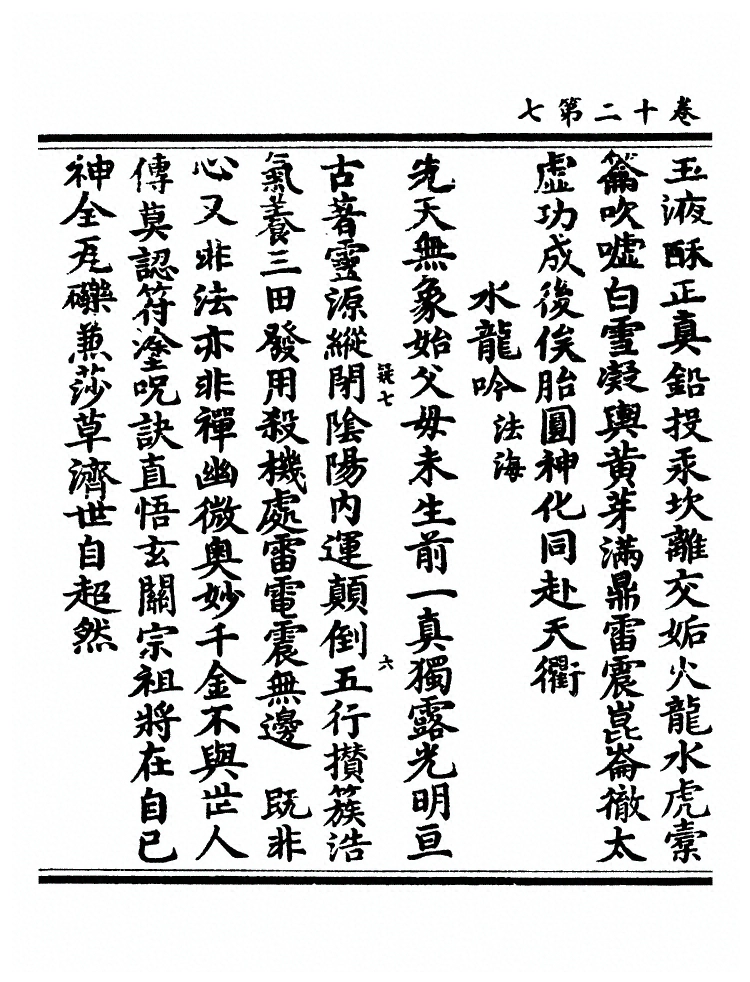 七第二十卷
玉液酥正真鉛投汞坎離交姤火龍水虎槖
籥吹噓白雪凝輿黄芽滿鼎雷震崑崙徹太
虛功成後俟胎圓神化同赴天衢
水龍吟 法海
先天無象始父母未生前一真獨露光明亘
古著靈源縱閉陰陽内運顛倒五行攅簇浩
疑七
六
氣養三田發用殺機處雷電震無邊 既非
心又非法亦非禪幽微奥妙千金不與世人
傳莫認符塗呪訣直悟玄關宗祖將在自己
神全瓦礫兼莎草濟世自超然